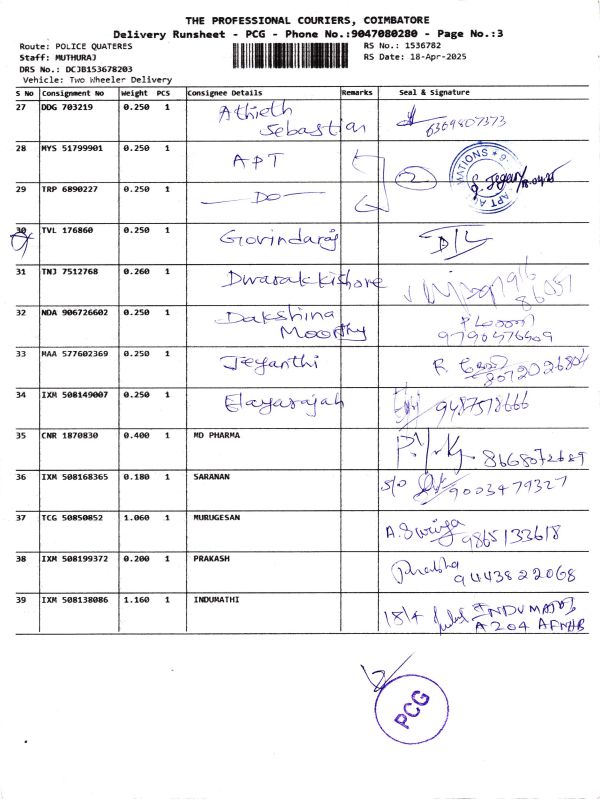 THE PROFESSIONAL COURIERS, COIMBATORE
Delivery Runsheet - PCG - Phone No.:9047080280 - Page No.:3
Route: POLICE QUATERES
RS No.: 1536782
Staff: MUTHURAJ
RS Date: 18-Apr-2025
DRS No.: DCJB153678203
Vehicle: Two Wheeler Delivery
S No Consignment No Weight PCS Consignee Details Remarks Seal & Signature
27 DDG 703219 0.250 1 Athieth
Sebastian
6369807373
28 MYS 51799901 0.250 1 APT 2
MATIONS
18.04.25
29 TRP 6890227 0.250 1 DO
30 TVL 176860 0.250 1 Govindaraj D/L
31 TNJ 7512768 0.260 1 Dwarakkishore
32 NDA 906726602 0.250 1 Dakshina
Moorthy
9790576409
33 MAA 577602369 0.250 1 Jeyanthi R
8072026804
34 IXM 508149007 0.250 1 Elayarajah 9487518666
35 CNR 1870830 0.400 1 MD PHARMA
8668072689
36 IXM 508168365 0.180 1 SARANAN S/O 9003479327
37 TCG 50850852 1.060 1 MURUGESAN A.Suriya 9865133618
38 IXM 508199372 0.200 1 PRAKASH Prabha
9443822068
39 IXM 508138086 1.160 1 INDUMATHI 18/4 INDUMATHI
A204 AFNHB
PCG